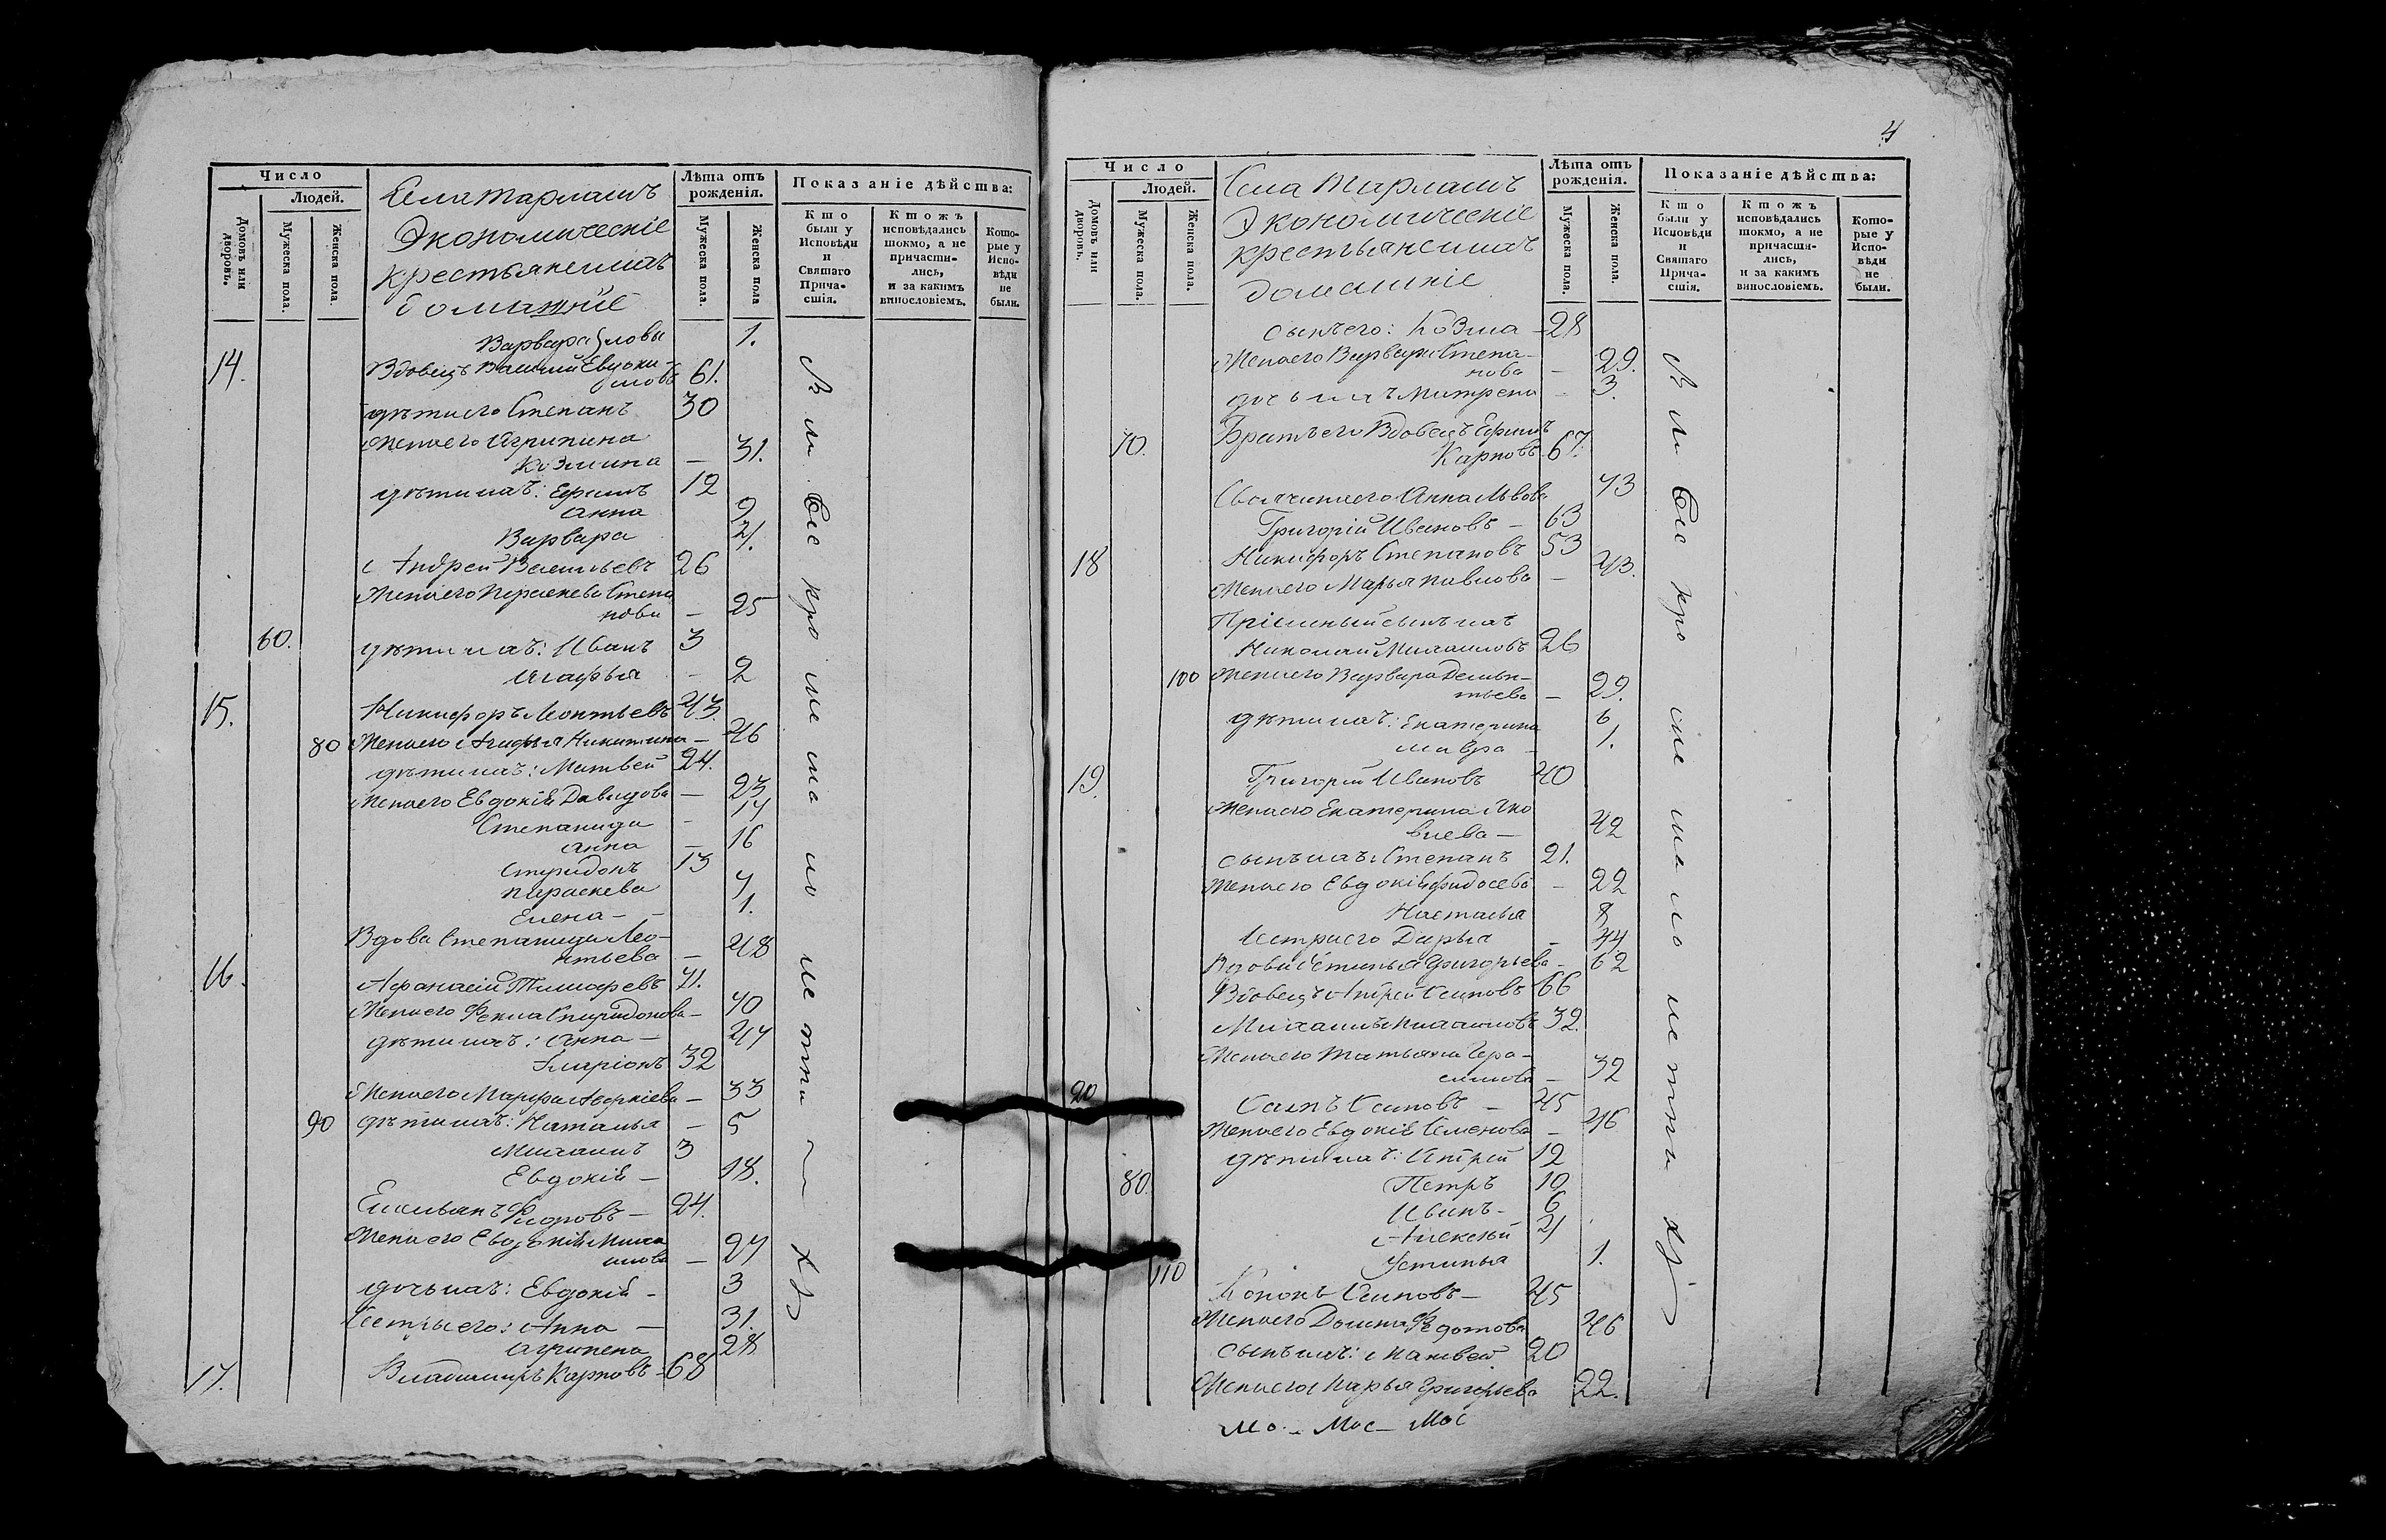 Число
Людей.
Домовъ или дворовъ.
Мужеска пола.
Женска пола.
Села
Экономическіе
крестьяне
Лѣта отъ рожденія.
Мужеска пола.
Женска пола
Показаніе дѣйства:
Кто были у Исповѣди и Святаго Причастія.
Ктожъ исповѣдались токмо, а не причастились, и за какимъ винословіемъ.
Которые у Исповѣди не были.
Варвара 1.
14. Вдовецъ Евдокимовъ 61.
дѣти его Степанъ 30
Жена его Агрипина
Козмина — 31.
дѣти ихъ: Ефимъ 12
Анна 9
Варвара 4.
Андрей Васильевъ 26
Жена его Параскева Степа
нова — 25
60. дѣти ихъ: Иванъ 3
Агафья - 2
15. Никифоръ Леонтьевъ 43.
80 Жена его Агафья Никитина — 46
дѣти ихъ: Матвей 24.
Жена его Евдокія Давыдова — 23
Степанида - 17
Анна — 16
Спиридонъ 13
Параскева 7
Елена - - 1.
Вдова Степанида Лео-
нтьева — 48
16. Афанасій 71.
Жена его Фекла Спиридонова — 70
дѣти ихъ: Анна — 27
Иларіонъ 32
Жена его Марфа Аверкіева — 33
90 дѣти ихъ: Наталья — 5
Михаилъ 3
Евдокія — 18.
Емельянъ — 24.
Жена его Евдокія Миха
илова — 27
дочь ихъ: Евдокія - 3
Сестры его: Анна — 31.
Агрипена 28
17. Владимиръ Карповъ - 68
4
Число
Людей.
Домовъ или дворовъ.
Мужеска пола.
Женска пола.
Села
Экономическіе
крестьяне
домашніе
Лѣта отъ рожденія.
Мужеска пола.
Женска пола.
Показаніе дѣйства:
Кто были у Исповѣди и Святаго Причастія.
Ктожъ исповѣдались токмо, а не причастились, и за какимъ винословіемъ.
Которые у Исповѣди не были.
сынъ его: Козма — 28
Жена его Варвара Степа-
нова — 29.
дочь ихъ Матрена - 3.
70. Братъ его Вдовецъ Ефимъ
Карповъ 67.
Анна Львова 73
Григорій Ивановъ — 63
18 Никифоръ Степановъ 53
Жена его Марья Павлова — 43.
Пріемный сынъ ихъ
Николай Михаиловъ 26
100 Жена его Варвара
— 29.
дѣти ихъ: Екатерина 6
Мавра - 1.
19. Григорій Ивановъ 40
Жена его Екатерина Яко
влева — 42
сынъ ихъ: Степанъ 21.
Жена его Евдокія Фидосева - 22
Настасья 8
Сестра его Дарья - 44
Вдова Устинья Григорьева - 62
Вдовецъ Осиповъ 66
Михаилъ Михаиловъ 32.
Жена его Татьяна Гера-
симова — 32
20 Осиповъ — 45
Жена его Евдокія Семенова — 46
дѣти ихъ: 12
80. Петръ 10
Иванъ - 6
Алексѣй 4
Устинья 1.
110 Кононъ Осиповъ — 45
Жена его Домна Федотова 46
сынъ ихъ: Матвей 20
Жена его Марья Григорьева 22.